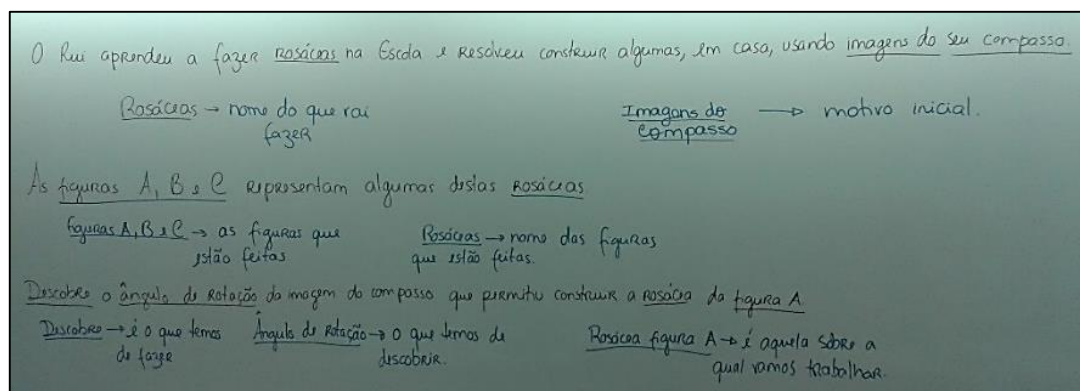 O Rui aprendeu a fazer rosáceas na Escola e resolveu construir algumas, em casa, usando imagens do seu compasso.
Rosáceas → nome do que vai
fazer
Imagens do
compasso → motivo inicial.
As figuras A, B e C representam algumas destas rosáceas
figuras A, B e C → as figuras que
estão feitas
Rosáceas → nome das figuras
que estão feitas.
Descobre o ângulo de rotação da imagem do compasso que permitiu construir a rosácea da figura A
Descobre → é o que temos
de fazer
Ângulo de rotação → o que temos de
descobrir.
Rosácea figura A → é aquela sobre a
qual vamos trabalhar.